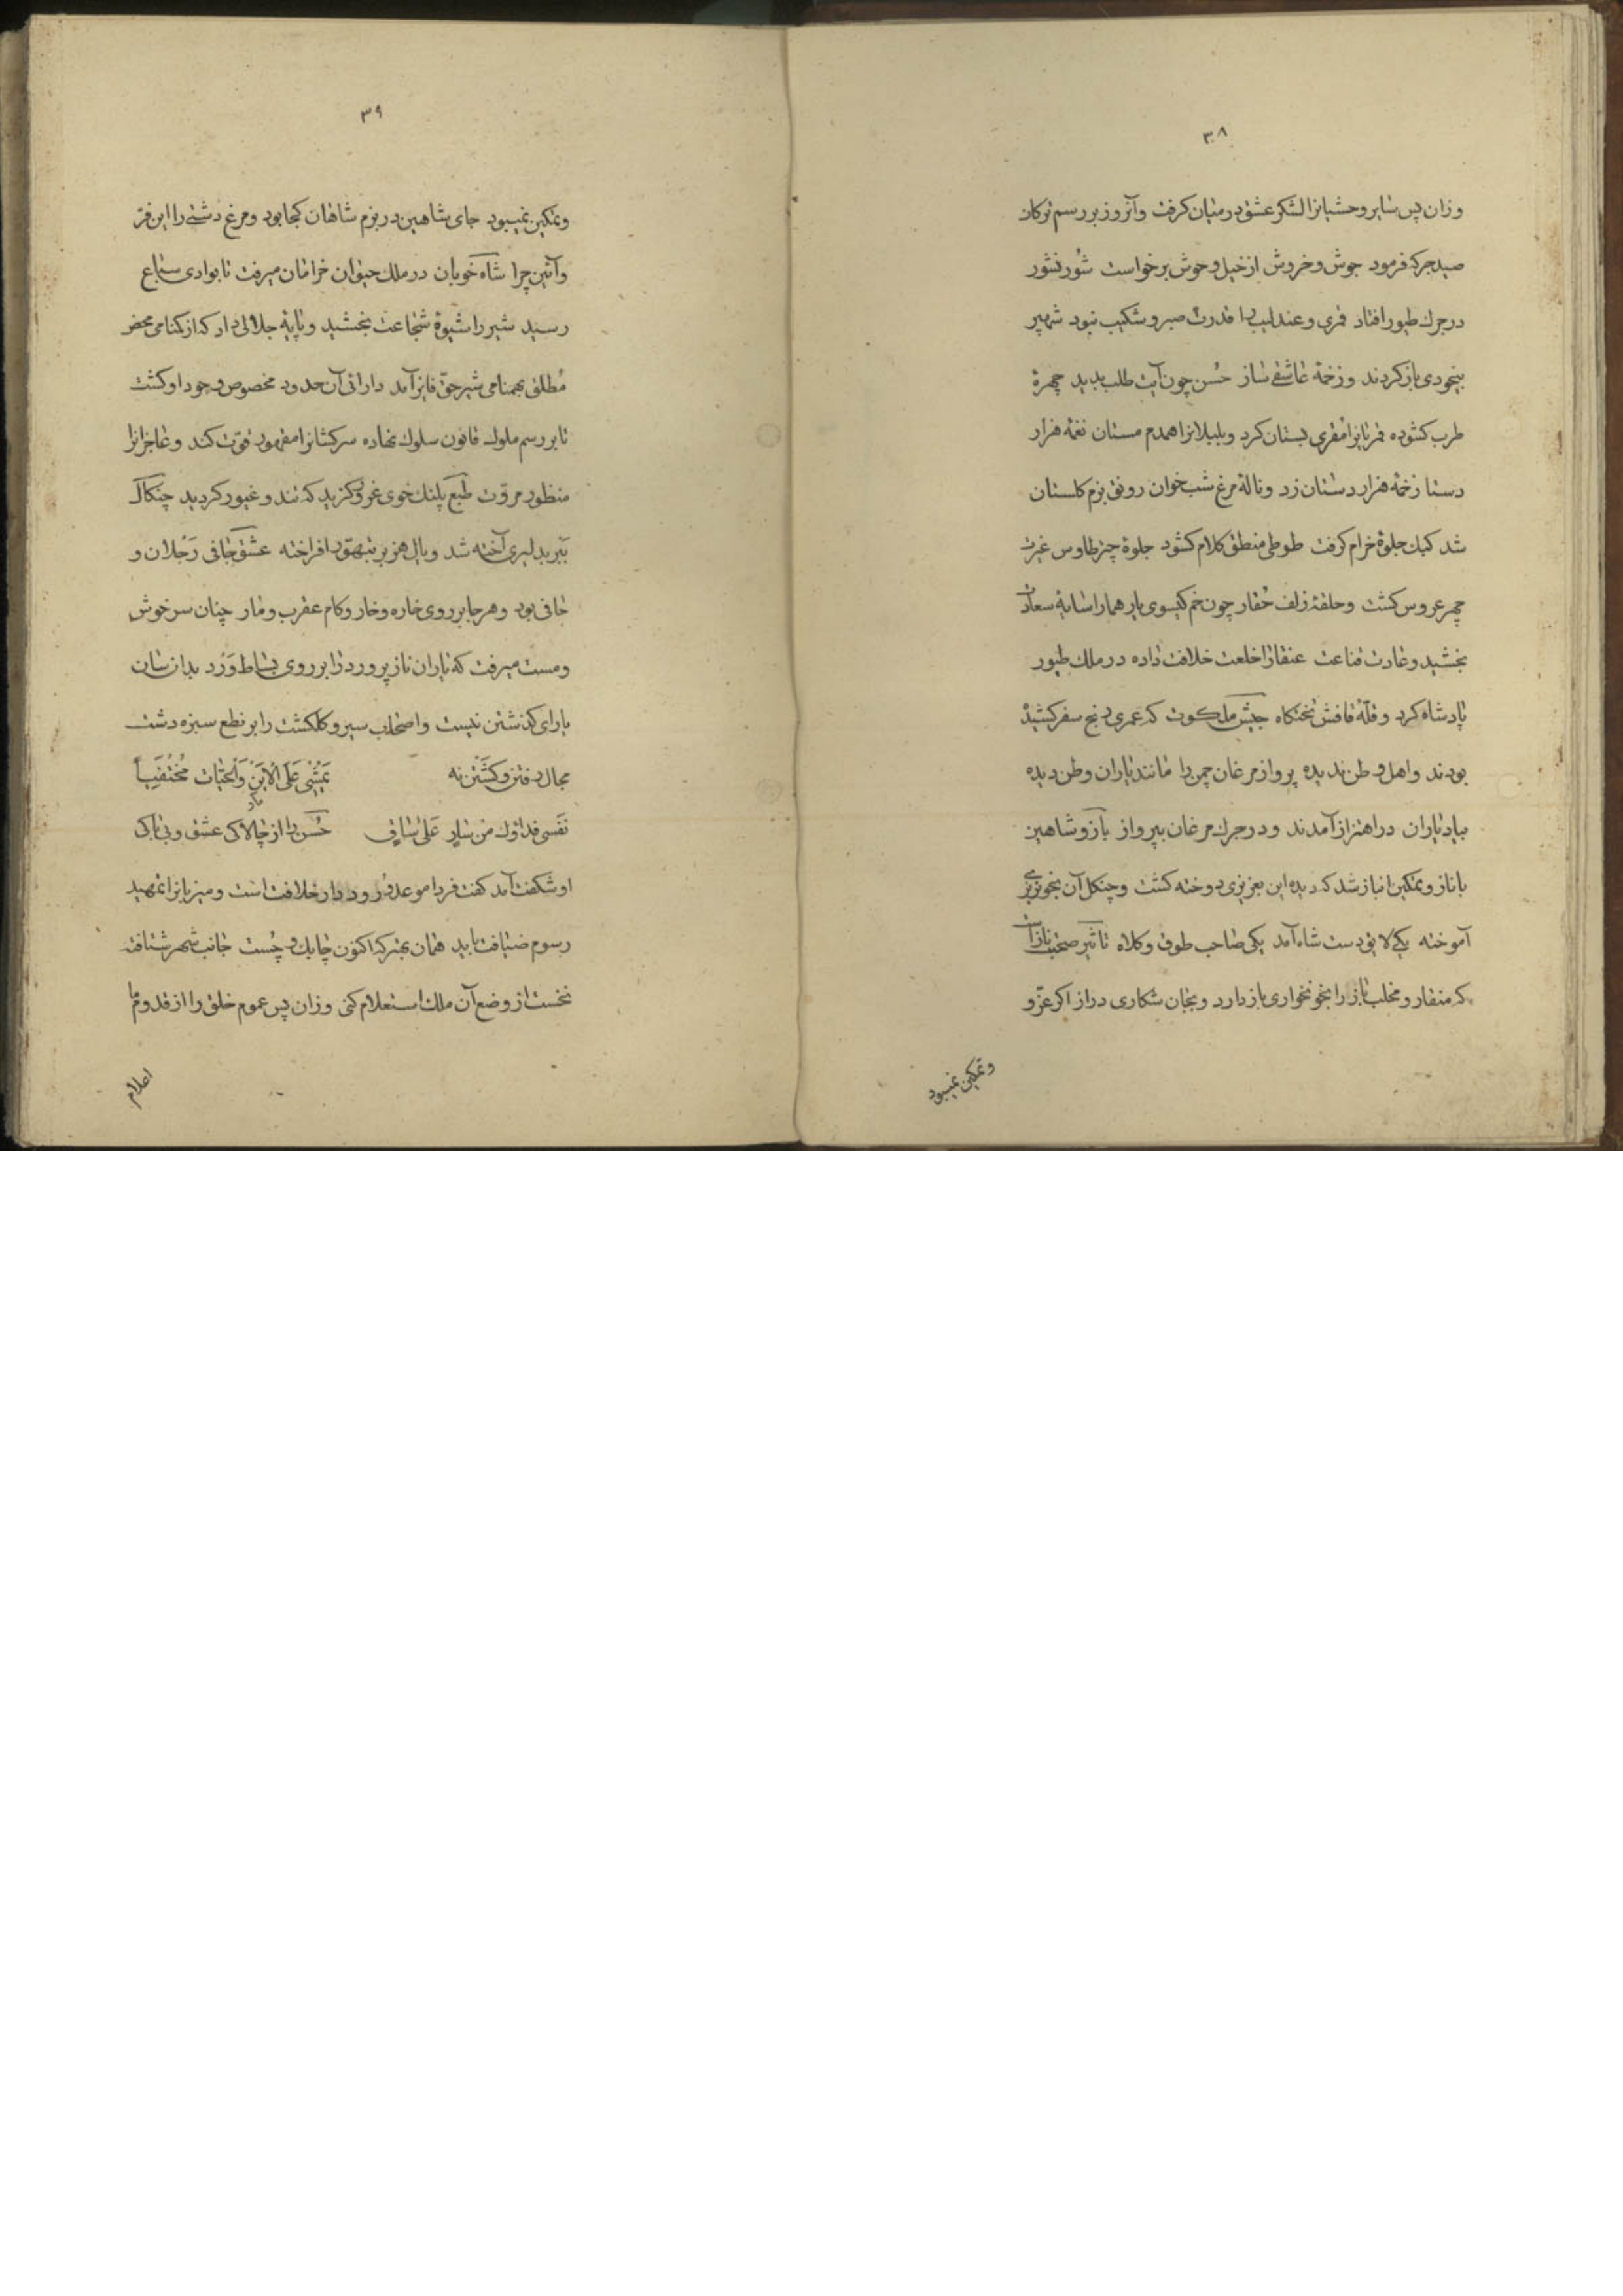 ۳۸
وزان پس سایر وحشیانرا لشکر عشق درمیان کرفت وآنروز بر رسم ترکان
صید جرکه فرمود جوش وخروش از خیل وحوش برخواست شور نشور
در جرک طیور افتاد قمری وعندلیب را قدرت صبر و شکیب نبود شهپر
بیخودی باز کردند وزخمهٔ عاشقی ساز حُسن چون آیت طلب بدید چهرهٔ
طرب کشوده قمریانرا مقری بستان کرد وبلبلانرا همدم مستان نغمهٔ هزار
دستا زخمهٔ هزار دستان زد ونالهٔ مرغ شب خوان رونق بزم کلستان
شد کبک جلوهٔ خرام کرفت طوطی منطق کلام کشود جلوهٔ چتر طاوس غیرت
چهر عروس کشت وحلقهٔ زلف چون خم کیسوی یار همارا سایهٔ سعادت
بخشید وعادت قناعت عنقارا خلعت خلافت داده در ملک طیور
پادشاه کرد وقلّهٔ قافش تختکاه جیش ملکوت که عمری رنج سفر کشیده
بودند واهل وطن ندیده پرواز مرغان چمن را مانند یاران وطن دیده
بیاد یاران در اهتزاز آمدند ودر جرک مرغان بپرواز باز وشاهین
با ناز وتمکین انباز شد که دیده این بعزیزی دوخته کشت وچنکل آن بخونریزی
آموخته یکی لایق دست شاه آمد یکی صاحب طوق وکلاه تاثیر صحبت نازآست
که منقار ومخلب باز را بخونخواری باز دارد وبجان شکاری دراز اکر عزّ و
وتمکین نمیبود
۳۹
وتمکین نمیبود جای شاهین در بزم شاهان کجا بود ومرغ دشتی را این فرّ
وآئین چرا شاه خوبان در ملک حیوان خرامان میرفت تا بوادی سباع
رسید شیر را شیوهٔ شجاعت بخشید وپایهٔ جلالی داد که از کمنامی محض
مُطلق بهمنامی شیر حق فایز آمد دارائی آن حدود مخصوص وجود او کشت
تا بر رسم ملوک قانون سلوک نهاده سرکشانرا مقهور قوّت کند وعاجزانرا
منظور مروّت طبع پلنک خوی غرور کزید که تند وغیور کردید چنکال
ببر بدلیری آخته شد ویال هزبر بتهوّر افراخته عشق حافی رَجْلان و
حافی بود وهر جا بر روی خاره وخار وکام عقرب ومار چنان سرخوش
ومست میرفت که یاران ناز پرورد را بر روی بساط وَرْد بدانسان
یارای کذشتن نیست واصحاب سیر وکلکشت را بر نطع سبزه دشت
مجال رفتن وکشتن نه یَمْشی عَلَی الْاَیْنِ وَالْحَیّات مُحْتَفِیاً
نَفسی فداؤک من سارٍ عَلی ساقٍ حُسن را از چالاکی عشق وبی باکی
او شکفت آمد کفت فردا موعد ورود دار خلافت است ومیزبانرا تمهید
رسوم ضیافت باید همان بهتر که اکنون چابک وچُست جانب شهر شتافته
نخست از وضع آن ملک استعلام کنی وزان پس عموم خلق را از قدوم ما
اعلام